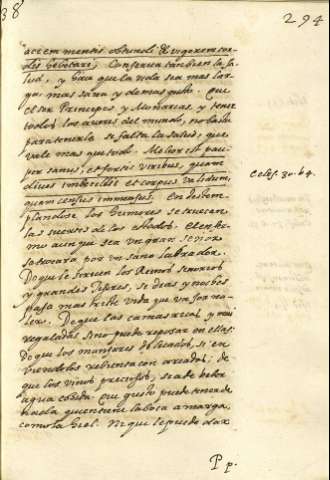 38
294
aciem mentis obtundi et vigorem cor-
Conserva tambien la sa-
lud, y haze que la vida sea mas lar-
ga, mas sana y de mas gusto. Que
el ser Principes, y Monarcas, y tener
todos los averes del mundo, no basta
para tenerla se falta la salud, que
vale mas que todo. Melior est pau-
per sanus, et fortis viribus, quam
dives imbecillis et corpus validum,
quam census immensus. En destem-
plandose los humores se truecan
las suertes de los estados. El enfer-
mo aunque sea un gran señor
se trocara por un sano labrador.
De que le sirven los Reinos señorios
y grandes
pasa mas triste vida que un
De que las camas ricas, y mas
regaladas sino puede reposar en ellas.
De que los manjares delicados, si en
viendolos rebientan arcadas; de
que los vinos preciosos, si a de beber
agua cocida. Que gusto puede tener de
nada quien tiene la boca amarga,
como la hiel. Ni que le puede dar
Eccles. 30. 14.
P p.